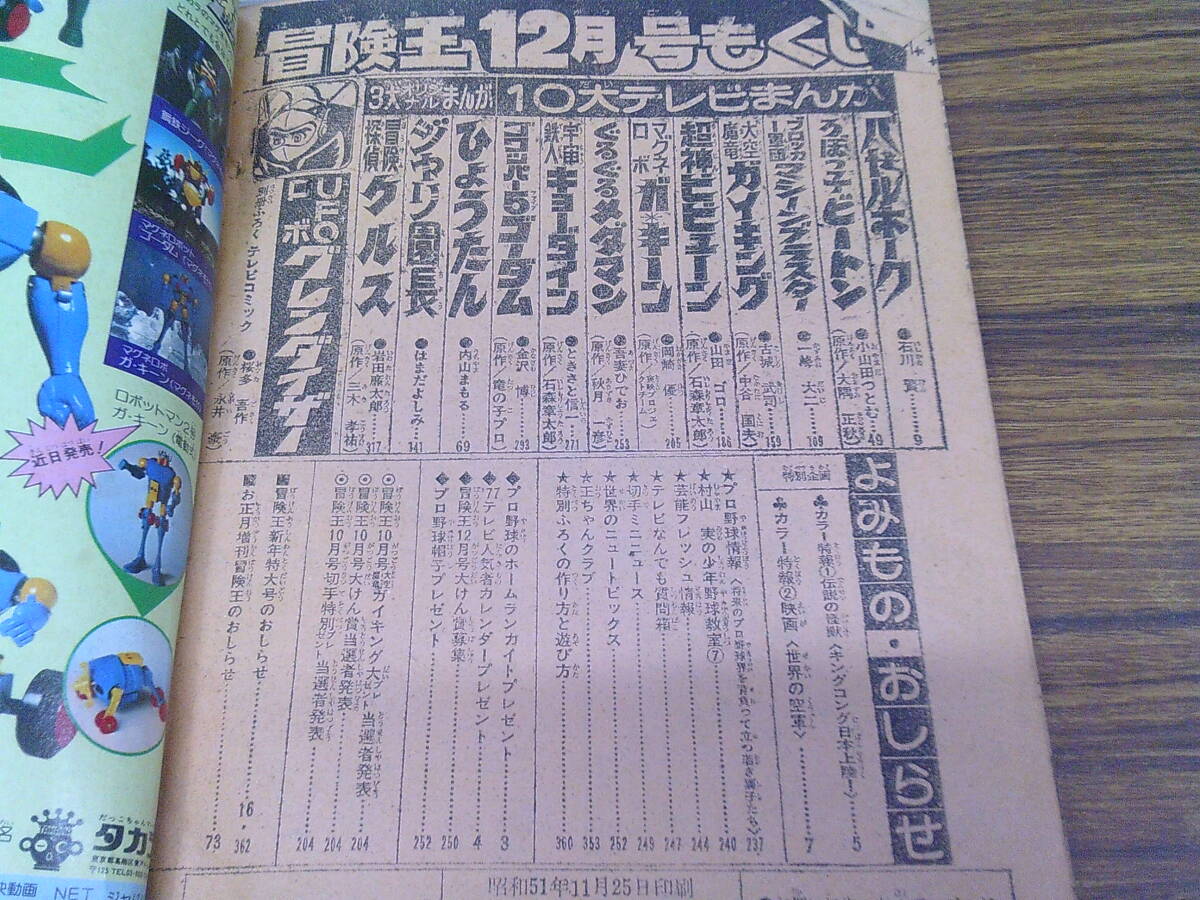 冒険王12月号もくじ
3大オリジナルまんが
10大テレビまんが
バトルホーク
石川 賢
9
ろぼっ子ビートン
小山田つとむ
(原作/大隅 正秋)
49
ブロッカー軍団マシーンブラスター
一峰 大二
109
大空魔竜ガイキング
古城 武司
(原作/中谷 国夫)
159
超神ビビューン
山田 ゴロ
(原作/石森章太郎)
186
マグネロボガ・キーン
岡崎 優
205
ぐるぐるメダマン
吾妻ひでお
(原作/秋月 一彦)
253
宇宙鉄人キョーダイン
ときき信一
(原作/石森章太郎)
271
ゴワッパー5ゴーダム
金沢 博
(原作/竜の子プロ)
293
ひょうたん
内山まもる
69
ジャリ園長
はまだよしみ
141
冒険探偵クルス
岩田廉太郎
(原作/三木 孝祐)
377
UFOロボグレンダイザー
別冊ふろく テレビコミック
桜多 吾作
(原作/永井 豪)
よみもの・おしらせ
特別企画
♣カラー特報①伝説の怪獣〈キングコング日本上陸!〉
5
♣カラー特報②映画〈世界の空軍〉
7
★プロ野球情報〈将来のプロ野球界を背負って立つ若き獅子たち〉
237
★村山 実の少年野球教室⑦
240
★芸能フレッシュ情報
244
★テレビなんでも質問箱
247
★切手ミニニュース
249
★世界のニュートピックス
252
★正ちゃんクラブ
353
★特別ふろくの作り方と遊び方
360
プロ野球のホームランカイトプレゼント
3
77テレビ人気者カレンダープレゼント
4
冒険王12月号大けん賞募集
250
プロ野球帽子プレゼント
252
◎冒険王10月号大空魔竜ガイキング大プレゼント当選者発表
204
◎冒険王10月号大けん賞当選者発表
204
◎冒険王10月号切手特別プレゼント当選者発表
204
冒険王新年特大号のおしらせ
16・362
お正月増刊冒険王のおしらせ
73
昭和51年11月25日印刷
鋼鉄ジーグ
マグネロボット
ゴーダム
マグネロボ
ガ・キーン
ロボットマン2号
ガ・キーン
近日発売!
だっこちゃん
タカ
NET